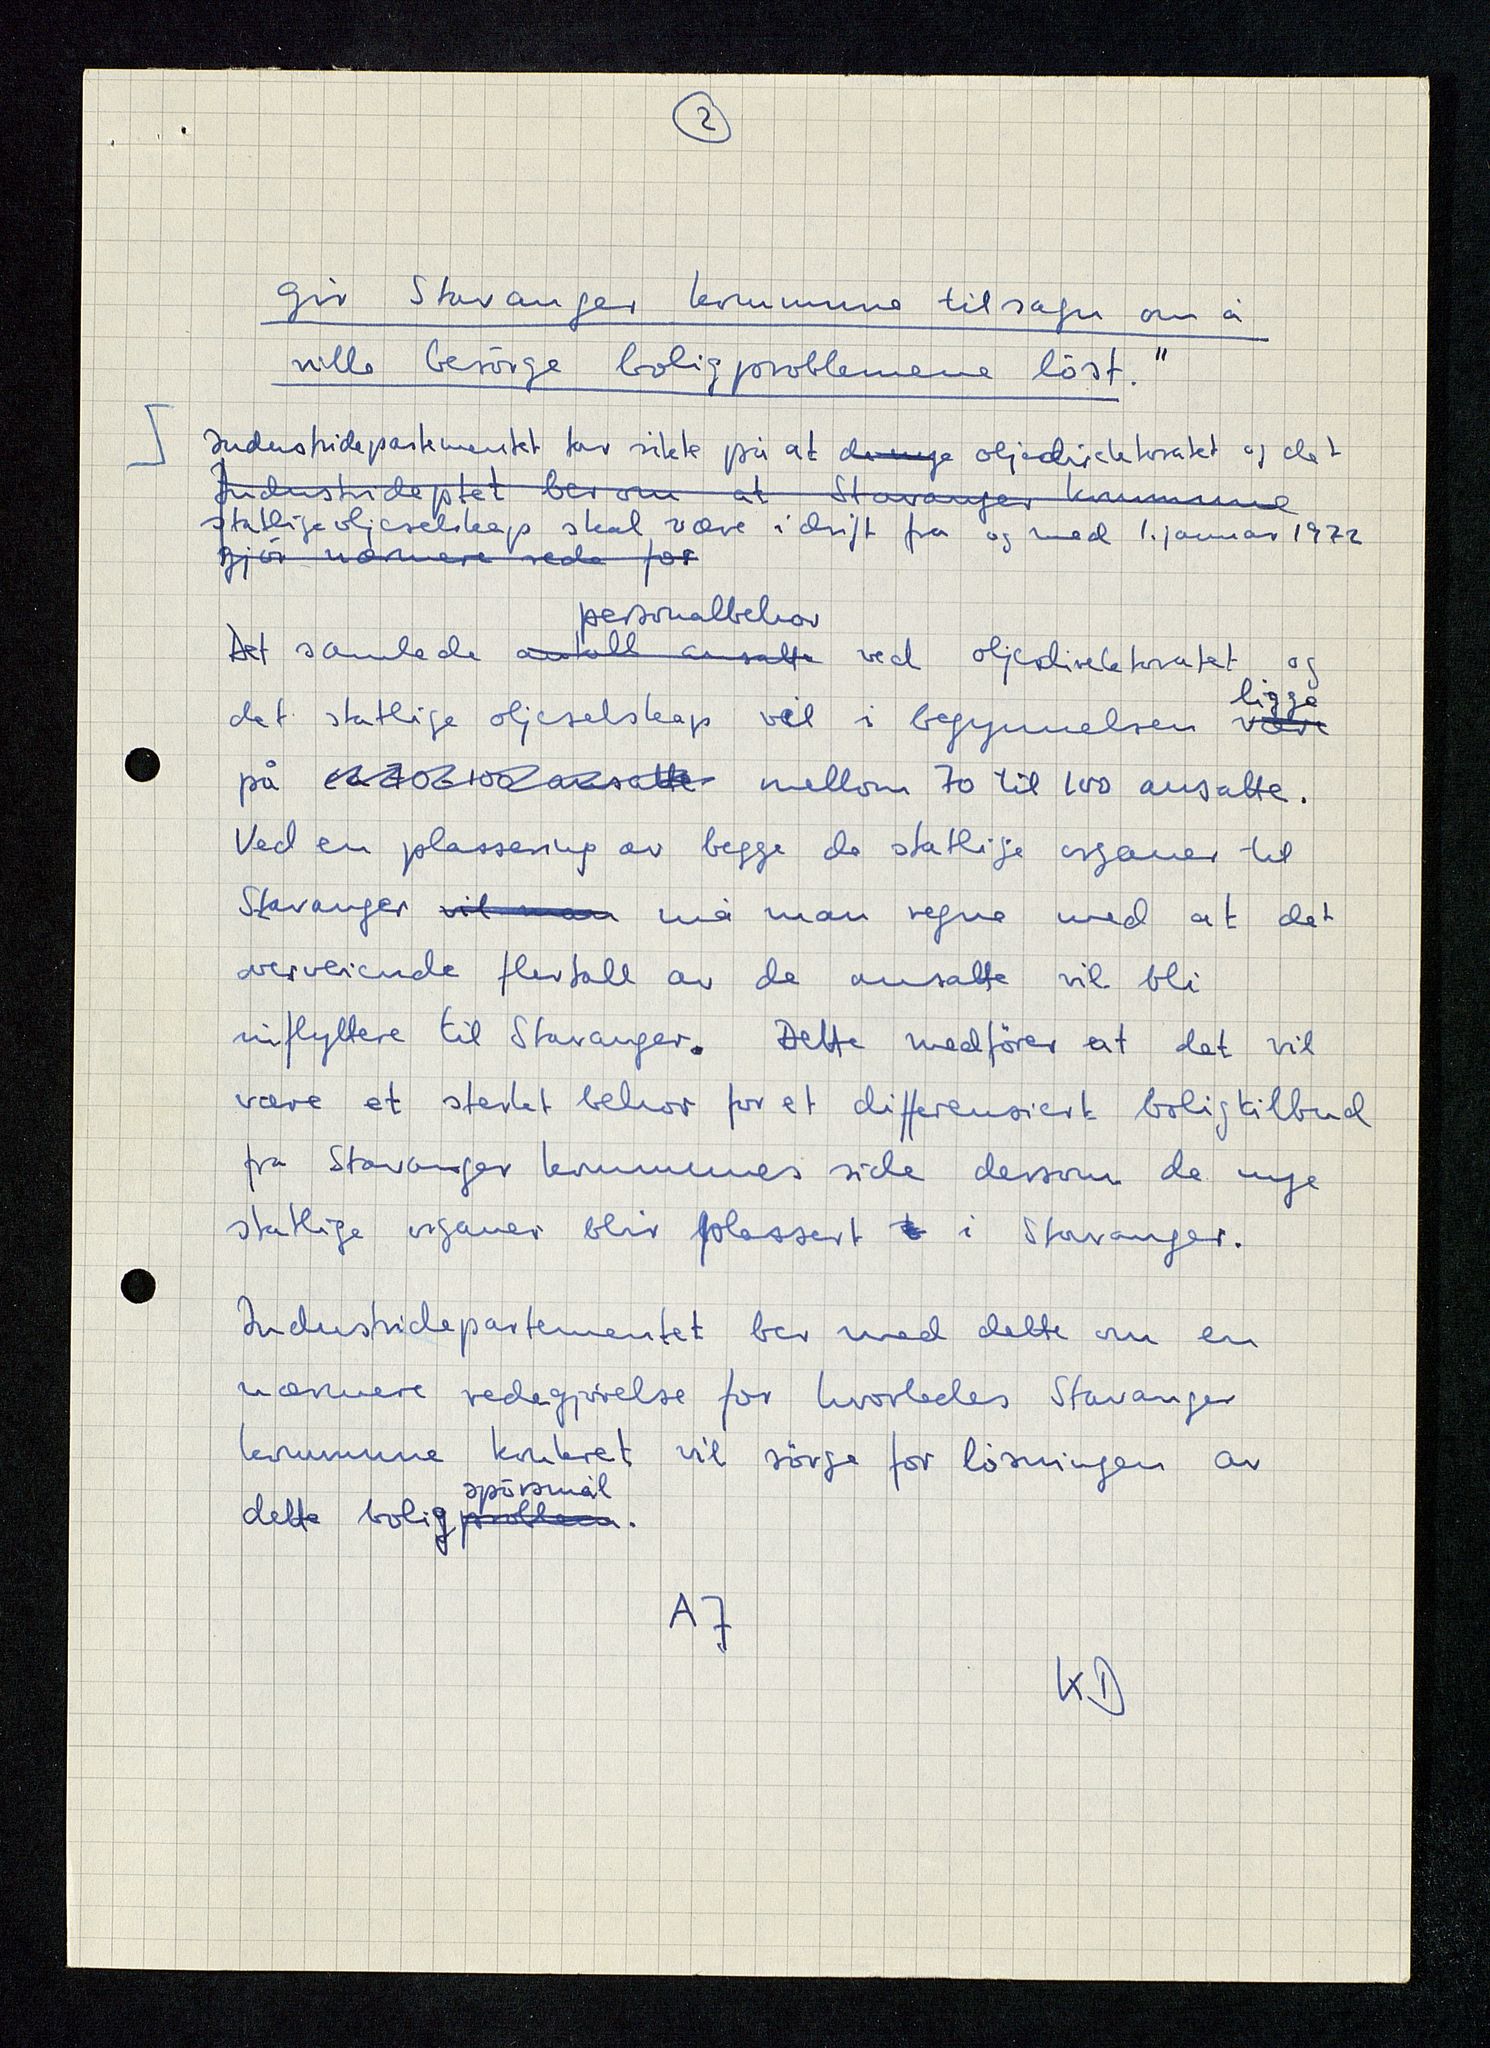 2
gir Stavanger kommune tilsagn om å
ville besörge boligproblemene löst."
Industridepartementet tar sikte på at de nye oljedirektoratet og det
Industrideptet ber om at Stavanger kommune
statlige oljeselskap skal være i drift fra og med 1. januar 1972
gjör nærmere rede for
personalbehov
Det samlede antall ansatte ved oljedirektoratet og
ligge
det statlige oljeselskap vil i begynnelsen være
på ca 70 til 100 ansatte mellom 70 til 100 ansatte.
Ved en plassering av begge de statlige organer til
Stavanger vil man må man regne med at det
overveiende flertall av de ansatte vil bli
innflyttere til Stavanger. Dette medförer at det vil
være et sterkt behov for et differensiert boligtilbud
fra Stavanger kommunes side dersom de nye
statlige organer blir plassert t i Stavanger.
Industridepartementet ber med dette om en
nærmere redegjörelse for hvorledes Stavanger
kommune konkret vil sörge for lösningen av
spörsmål
dette boligproblem.
A7
KD